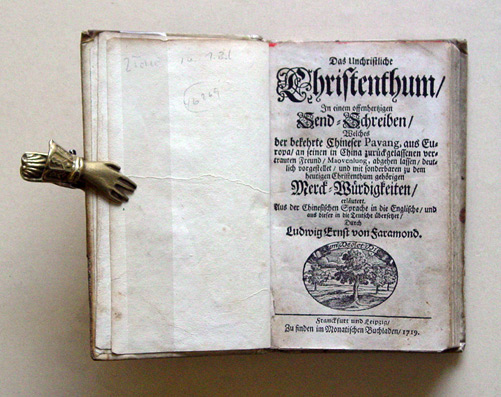 Das Unchristliche
Christenthum/
In einem offenhertzigen
Send-Schreiben/
Welches
der bekehrte Chineser Pavang, aus Eu-
ropa/ an seinen in China zurückgelassenen ver-
trauten Freund/ Maovenlung, abgehen lassen/ deut-
lich vorgestellet/ und mit sonderbaren zu dem
heutigen Christenthum gehörigen
Merck-Würdigkeiten/
erläutert.
Aus der Chinesischen Sprache in die Englische/ und
aus dieser in die Teutsche übersetzet/
Durch
Ludwig Ernst von Faramond.
Franckfurt und Leipzig/
Zu finden im Monatischen Buchladen/ 1719.